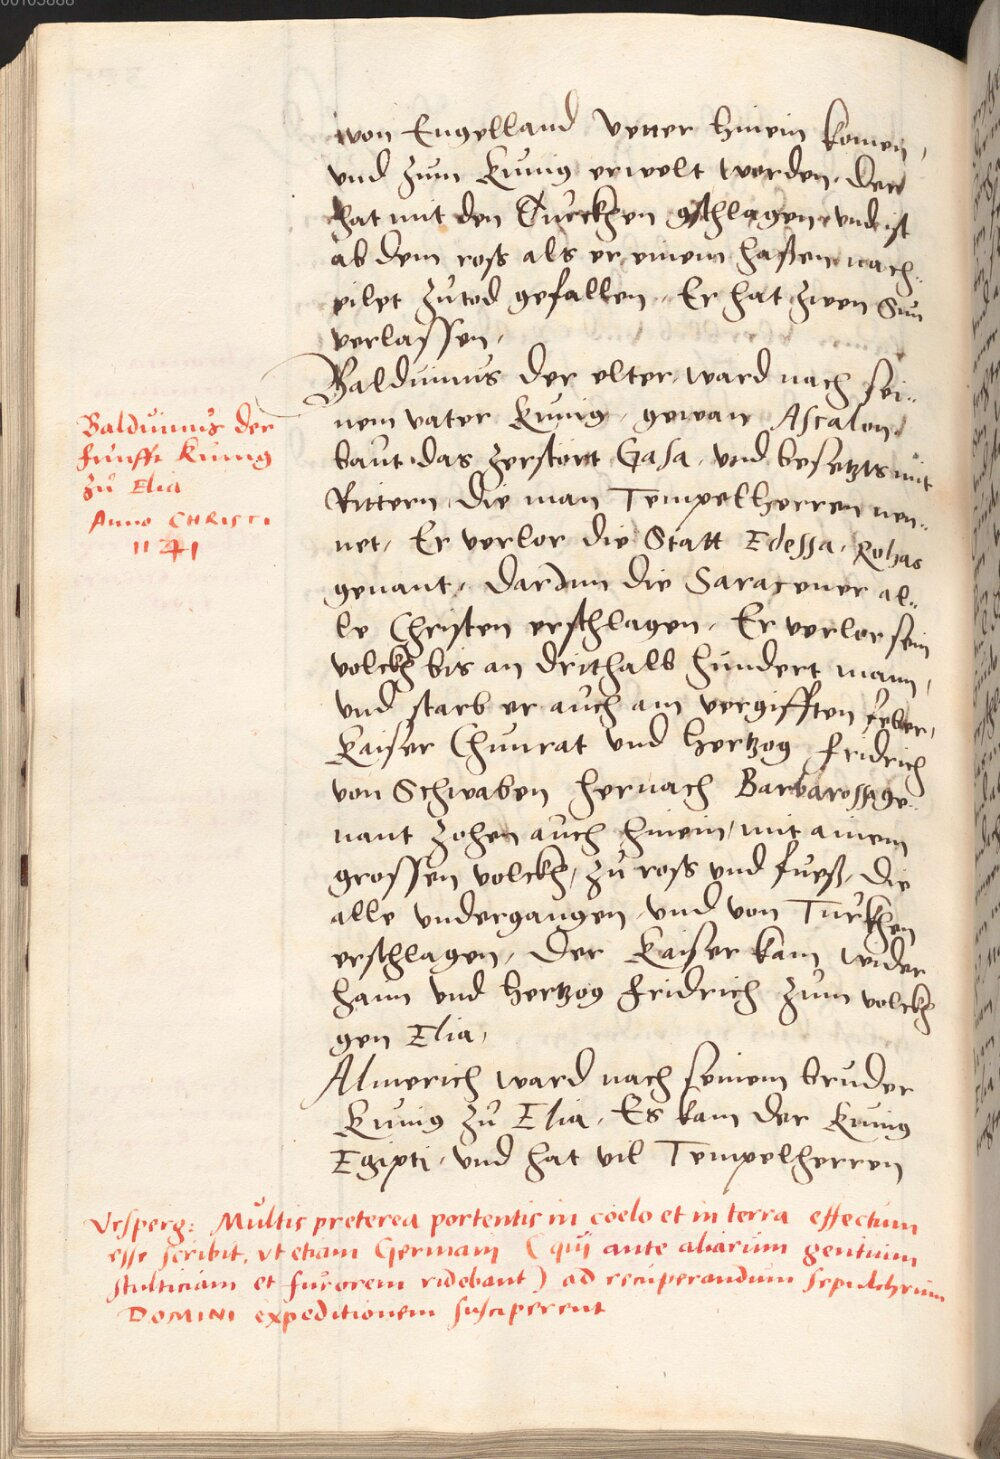 von Engelland Vetter hinein komen,
vnd zum Kunig erwelt worden. Der
hat mit den Türckhen gschlagen, vnd ist
ab dem ross als er einem hasßen nach„
eilet zu tod gefallen. Er hat zwen Sün
verlassen,
Balduinus der elter, ward nach sei„
nem vater Kunig, gewan Ascalon,
baut das zerstört Gasa, vnd besetzts mit
Rittern, die man Tempelherren nen„
net, Er verlor die Statt Edessa, Rohas
genant, darinn die Saracener al„
le Christen erschlagen, Er verlor sein
volckh bis an drithalb hundert mann,
vnd starb er auch am vergifften feber,
Kaiser Chunrat vnd Hertzog Fridrich
von Schwaben hernach Barbarossa ge„
nant zohen auch hinein, mit ainem
grossen volckh, zu ross vnd fueß, die
alle vndergangen, vnd von Türkhen
erschlagen, Der Kaiser kam wider
haim vnd Hertzog Fridrich zum volckh
gen Elia,
Almerich ward nach seinem bruder
Kunig zu Elia, Es kam der Kunig
Egipti, vnd hat vil Tempelherren
Balduinus der
funfft Kunig
zu Elia
Anno CHRISTI
1141
Vrsperg: Multis preterea portentis in coelo et in terra effectum
esse scribit, vt etiam Germanj (quj ante aliarum gentium
stulticiam et furorem ridebant) ad recuperandum sepulchrum
DOMINI expeditionem susciperent